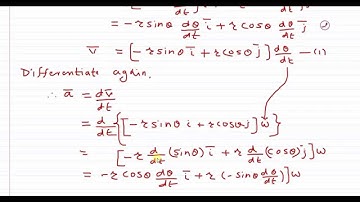 dt dt
= -r sinθ dθ/dt i̅ + r cosθ dθ/dt j̅
v̅ = [-r sinθ i̅ + r cosθ j̅] dθ/dt —(1)
Differentiate again.
∴ a̅ = dv̅/dt
= d/dt {[-r sinθ i + r cosθ j] ω}
= [-r d/dt (sinθ) i̅ + r d/dt (cosθ) j̅] ω
= -r cosθ dθ/dt i̅ + r (-sinθ dθ/dt)] ω